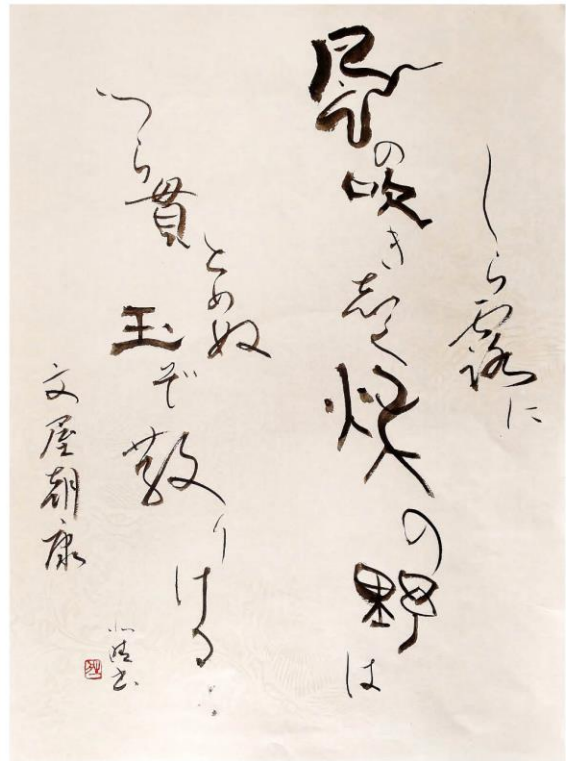 しら露に
風の吹き志く秋の野は
つら貫
とめぬ
玉ぞ散りける
文屋朝康
書